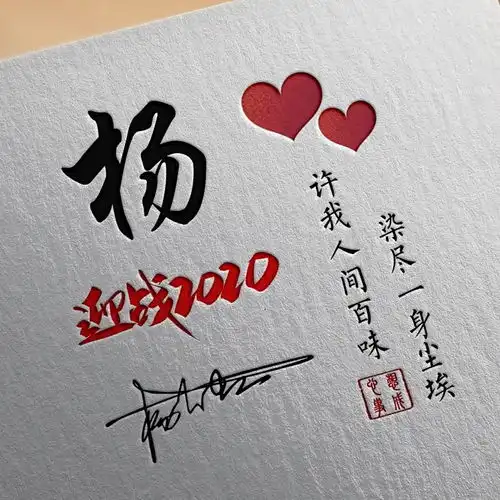 杨
迎战2020
许我人间百味
染尽一身尘埃